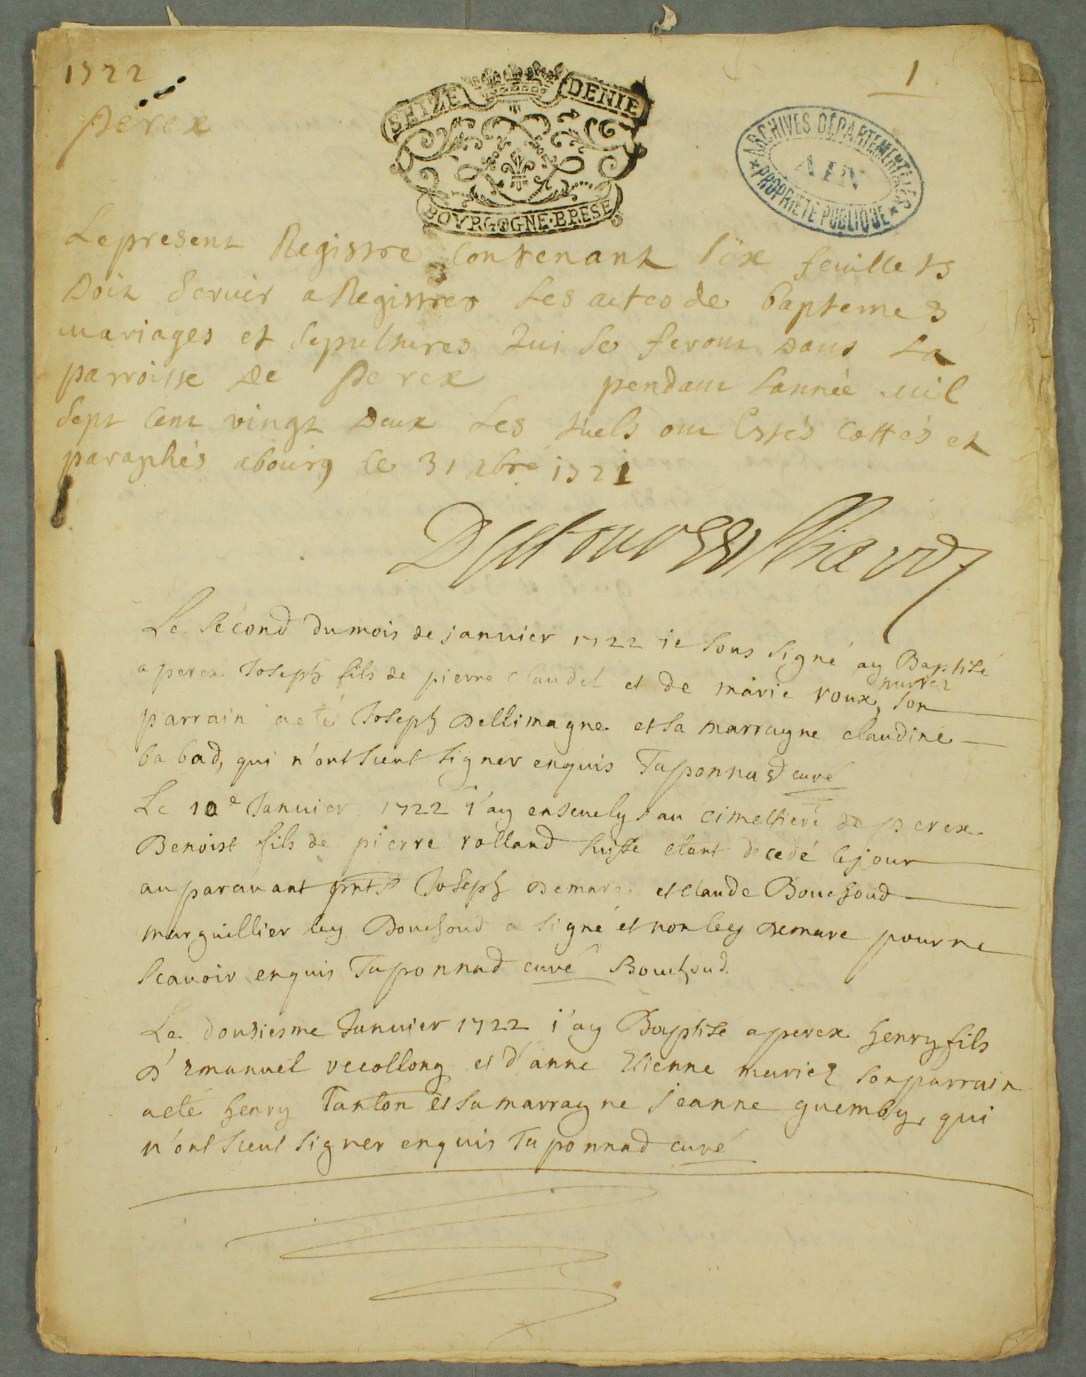 1722
1
pérex
SEIZE DENIE
BOVRGOGNE·BRESE
ARCHIVES DÉPARTEMENTALES
AIN
PROPRIÉTÉ PUBLIQUE
Le present Registre Contenant six feuillets
Doit servir a Registrer Les actes de baptemes
mariages et sepultures qui se feront dans La
parroisse de perex pendant Lannée mil
sept cent vingt deux Les quels ont Estés cottés et
paraphés abourg ce 31 xbre 1721
Le second dumois de janvier 1722 je sous signé ay Baptisé
a perex Joseph fils de pierre claudet et de marie roux mariez son
parrain a eté Joseph Dellimagne et sa marragne claudine
babad, qui n'ont sceut signer enquis Taponnad curé
Le 10e Janvier 1722 j'ay ensevely au cimethiere de perex
Benoist fils de pierre rolland suisse etant decedé le jour
auparavant pnts Joseph Demare et claude Bouchoud
marguillier ley Bouchoud a signé et non ley Demare pour ne
scavoir enquis Taponnad curé Bouchoud
Le dousiesme Janvier 1722 j'ay Baptise a perex henry fils
d'Emanuel vecollong et d'anne Etienne mariez son parrain
a eté henry Tanton et sa marragne jeanne guemby, qui
n'ont sceut signer enquis Taponnad curé